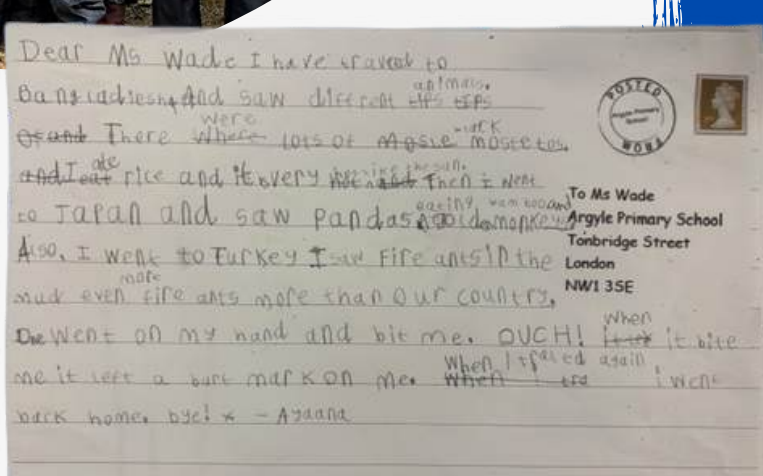 Dear Ms Wade I have travel to
Bangladiesh And saw different animals.
There were lots of mostetos.
I ate rice and it very Then I went
to Japan and saw pandas eating monkey
Also, I went to Turkey I saw fire ants in the
mud even more fire ants more than our country.
One went on my hand and bit me. OUCH! When it bite
me it left a burt mark on me. When I again, i went
back home. bye! x - Ayaana
POSTED
Argyle Primary School
WORA
To Ms Wade
Argyle Primary School
Tonbridge Street
London
NW1 3SE